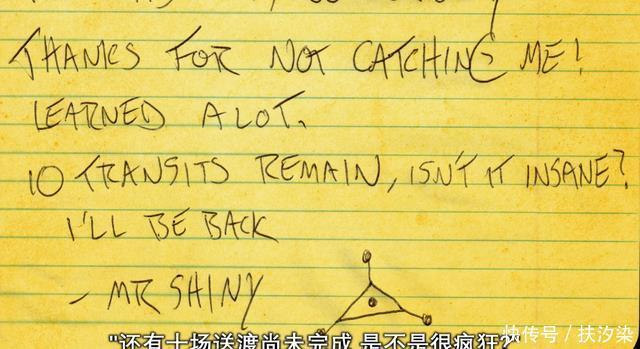 THANKS FOR NOT CATCHING ME!
LEARNED A LOT.
10 TRANSITS REMAIN, ISN'T IT INSANE?
I'LL BE BACK
- MR SHINY
"还有十场送渡尚未完成 是不是很疯狂?
快传号 / 扶汐染